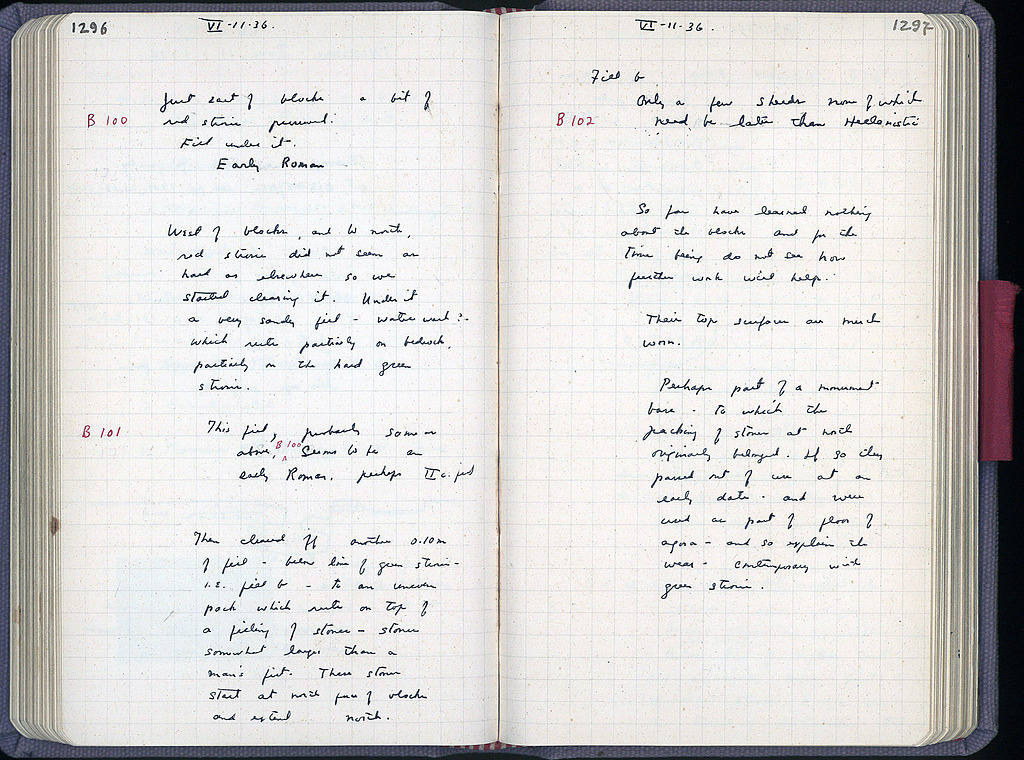 1296
VI-11-36.
Just east of blocks a bit of
B 100 red strosis preserved.
Fill under it.
Early Roman
West of blocks, and to north,
red strosis did not seem as
hard as elsewhere so we
started clearing it. Under it
a very sandy fill - water wash? -
which rests partially on bedrock,
partially on the hard green
strosis.
B 101 This fill, probably same as
above, B 100 seems to be an
early Roman, perhaps II c.
Then cleared off another 0.10m
of fill - below line of green strosis -
i.e. fill b - to an uneven
pack which rests on top of
a filling of stones - stones
somewhat larger than a
man's fist. These stones
start at north face of blocks
and extend north.
VI-11-36.
1297
Fill b
Only a few sherds none of which
B 102 need be later than Hellenistic
So far have learned nothing
about the blocks and for the
time being do not see how
further work will help.
Their top surfaces are much
worn.
Perhaps part of a monument
base - to which the
packing of stones at north
originally belonged. If so they
passed out of use at an
early date - and were
used as part of floor of
agora - and so explain the
wear - contemporary with
green strosis.